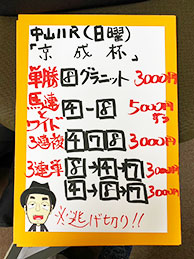 中山11R(日曜)
「京成杯」
単勝 8 グラニット 3000円
馬連とワイド 4-8 5000円ずつ
3連複 4 7 8 3000円
3連単 8→4→7 3000円
4→8→7 3000円
必逃げ切り!!